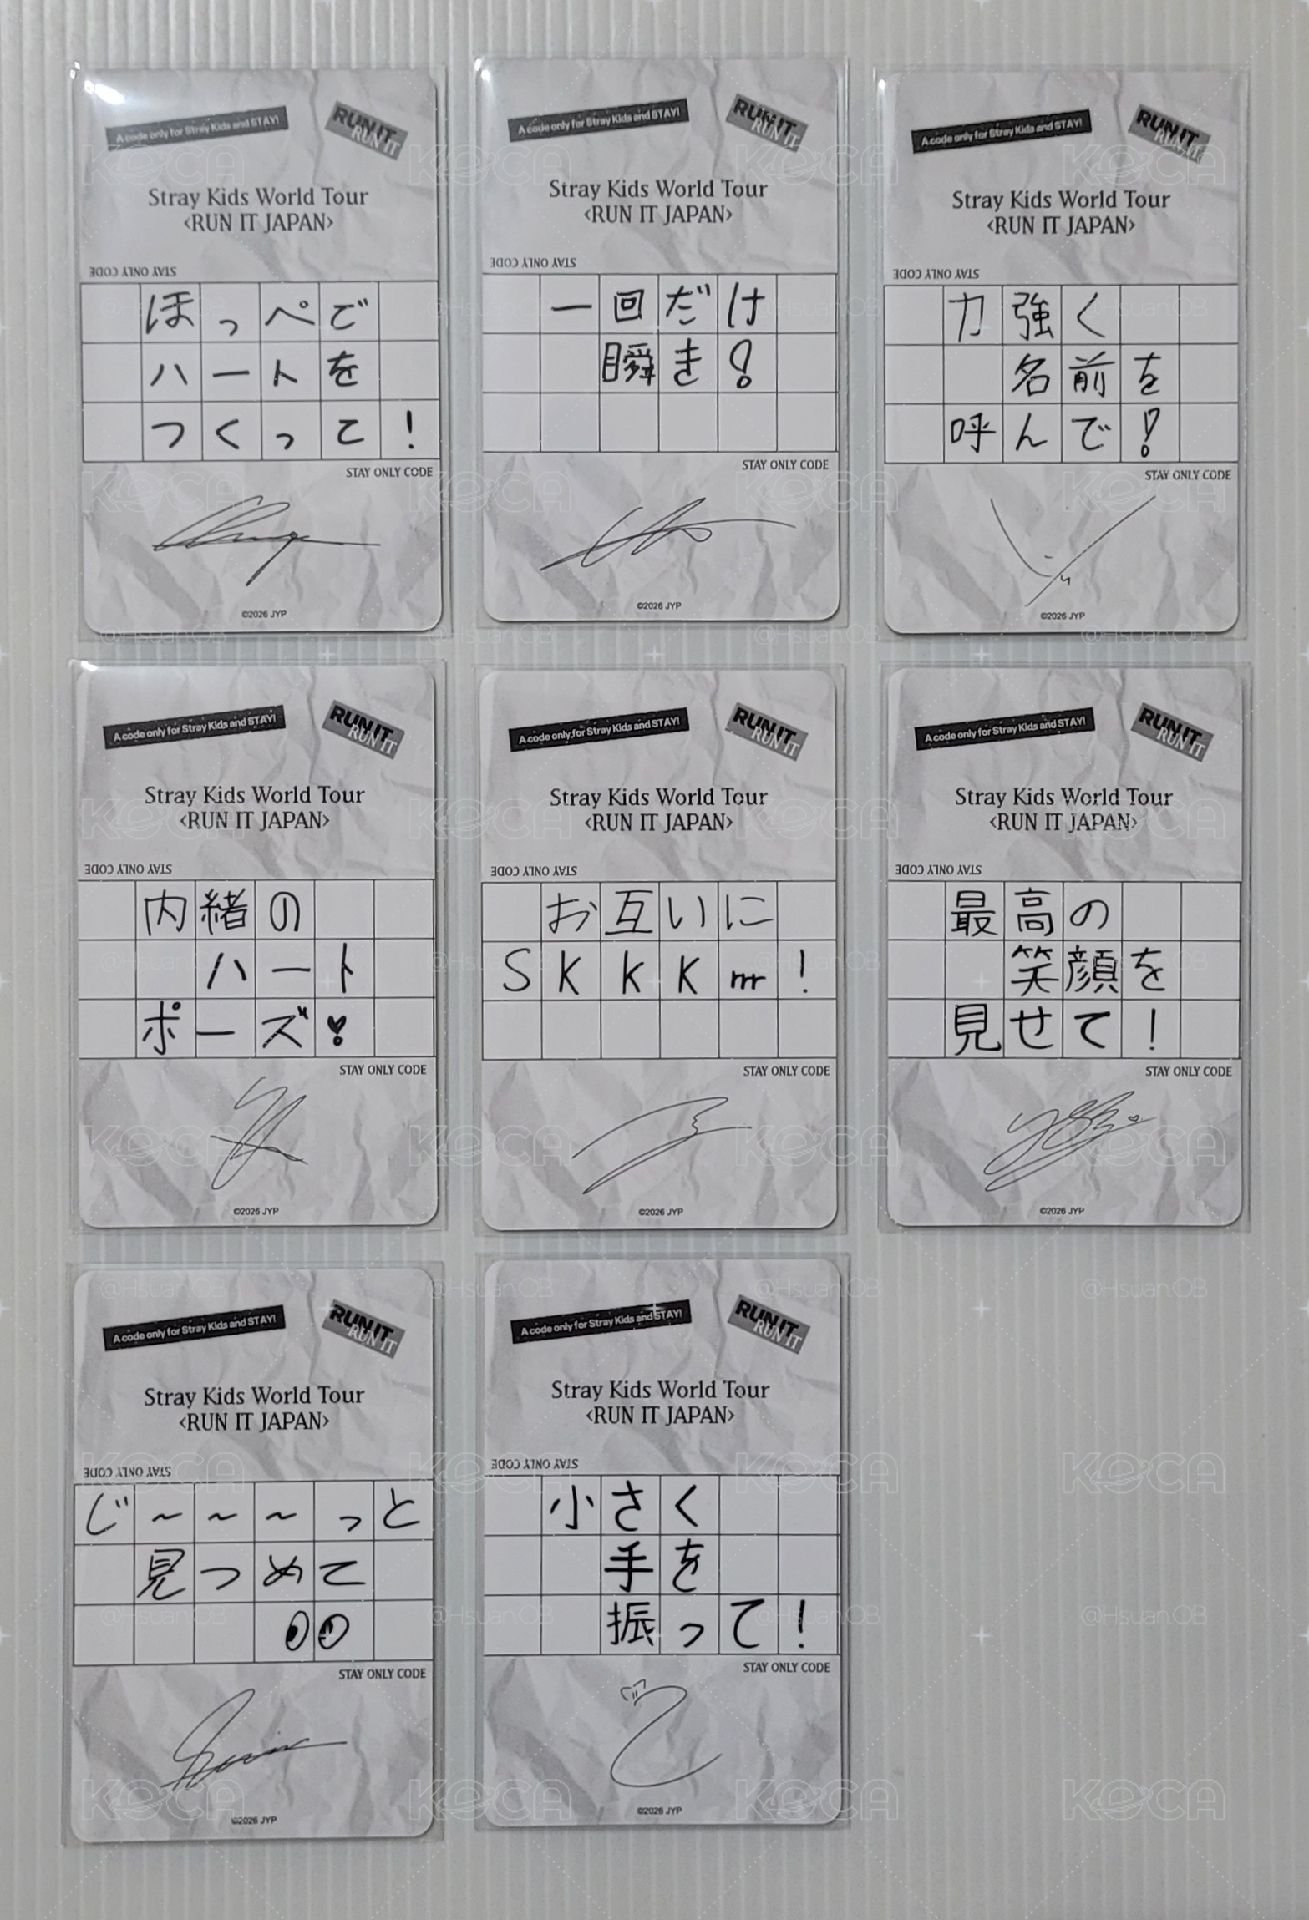 A code only for Stray Kids and STAY!
RUN IT
RUN IT
Stray Kids World Tour
<RUN IT JAPAN>
STAY ONLY CODE
ほっぺで
ハートを
つくって!
STAY ONLY CODE
©2026 JYP
A code only for Stray Kids and STAY!
RUN IT
RUN IT
Stray Kids World Tour
<RUN IT JAPAN>
STAY ONLY CODE
一回だけ
瞬き!
STAY ONLY CODE
©2026 JYP
A code only for Stray Kids and STAY!
RUN IT
RUN IT
Stray Kids World Tour
<RUN IT JAPAN>
STAY ONLY CODE
力強く
名前を
呼んで!
STAY ONLY CODE
©2026 JYP
A code only for Stray Kids and STAY!
RUN IT
RUN IT
Stray Kids World Tour
<RUN IT JAPAN>
STAY ONLY CODE
内緒の
ハート
ポーズ❣
STAY ONLY CODE
©2026 JYP
A code only for Stray Kids and STAY!
RUN IT
RUN IT
Stray Kids World Tour
<RUN IT JAPAN>
STAY ONLY CODE
お互いに
SKKKrrr!
STAY ONLY CODE
©2026 JYP
A code only for Stray Kids and STAY!
RUN IT
RUN IT
Stray Kids World Tour
<RUN IT JAPAN>
STAY ONLY CODE
最高の
笑顔を
見せて!
STAY ONLY CODE
©2026 JYP
A code only for Stray Kids and STAY!
RUN IT
RUN IT
Stray Kids World Tour
<RUN IT JAPAN>
STAY ONLY CODE
じ~~~っと
見つめて
STAY ONLY CODE
©2026 JYP
A code only for Stray Kids and STAY!
RUN IT
RUN IT
Stray Kids World Tour
<RUN IT JAPAN>
STAY ONLY CODE
小さく
手を
振って!
STAY ONLY CODE
©2026 JYP
KOCA
@HsuanOB